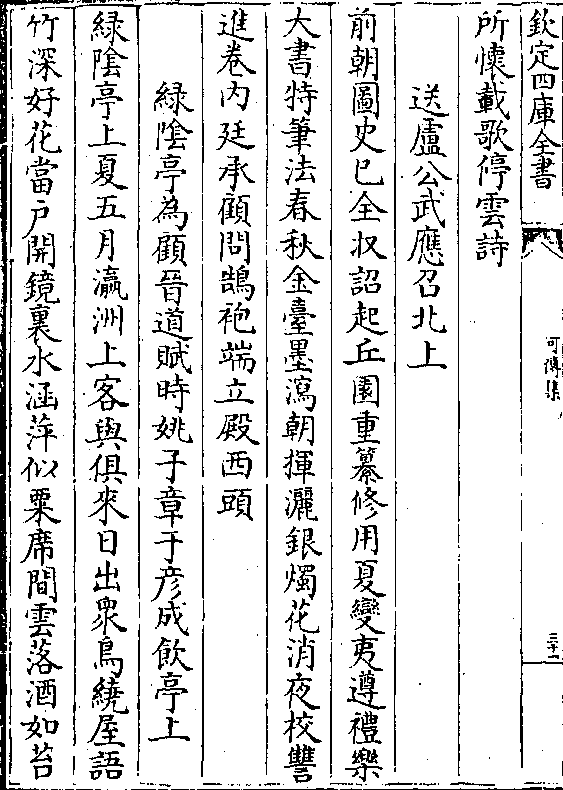 欽定四庫全書
可傳集
三十一
所懷載歌停雲詩
送盧公武應召北上
前朝圖史已全收詔起丘園重纂修用夏變夷遵禮樂
大書特筆法春秋金臺墨瀉朝揮灑銀燭花消夜校讐
進卷内廷承顧問鵠袍端立殿西頭
緑陰亭為顧晉道賦時姚子章于彦成飲亭上
緑陰亭上夏五月瀛洲上客與俱來日出衆鳥繞屋語
竹深好花當户開鏡裏水涵萍似粟席間雲落酒如苔